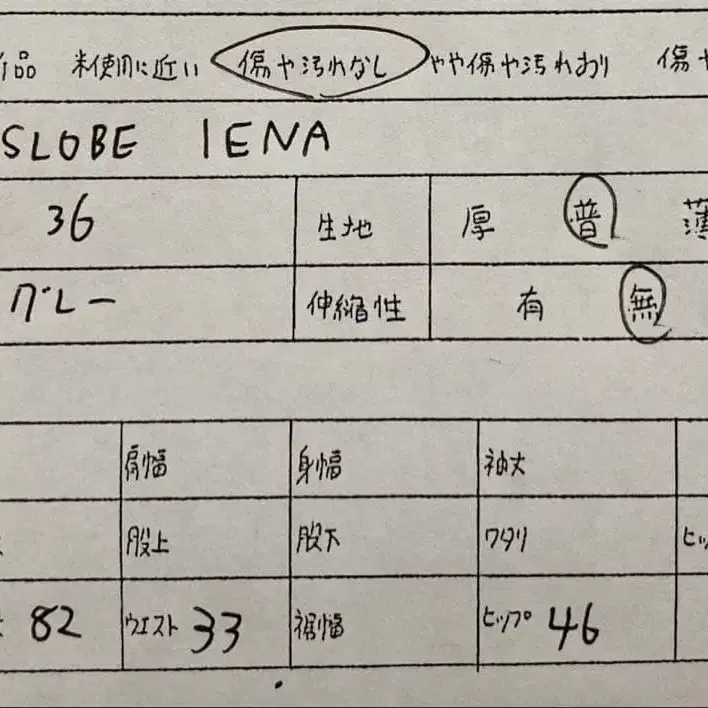 品 未使用に近い 傷や汚れなし やや傷や汚れあり 傷や
SLOBE IENA
36 生地 厚 普 薄
グレー 伸縮性 有 無
肩幅 身幅 袖丈
股上 股下 ワタリ ヒッ
82 ウエスト 33 裾幅 ヒップ 46